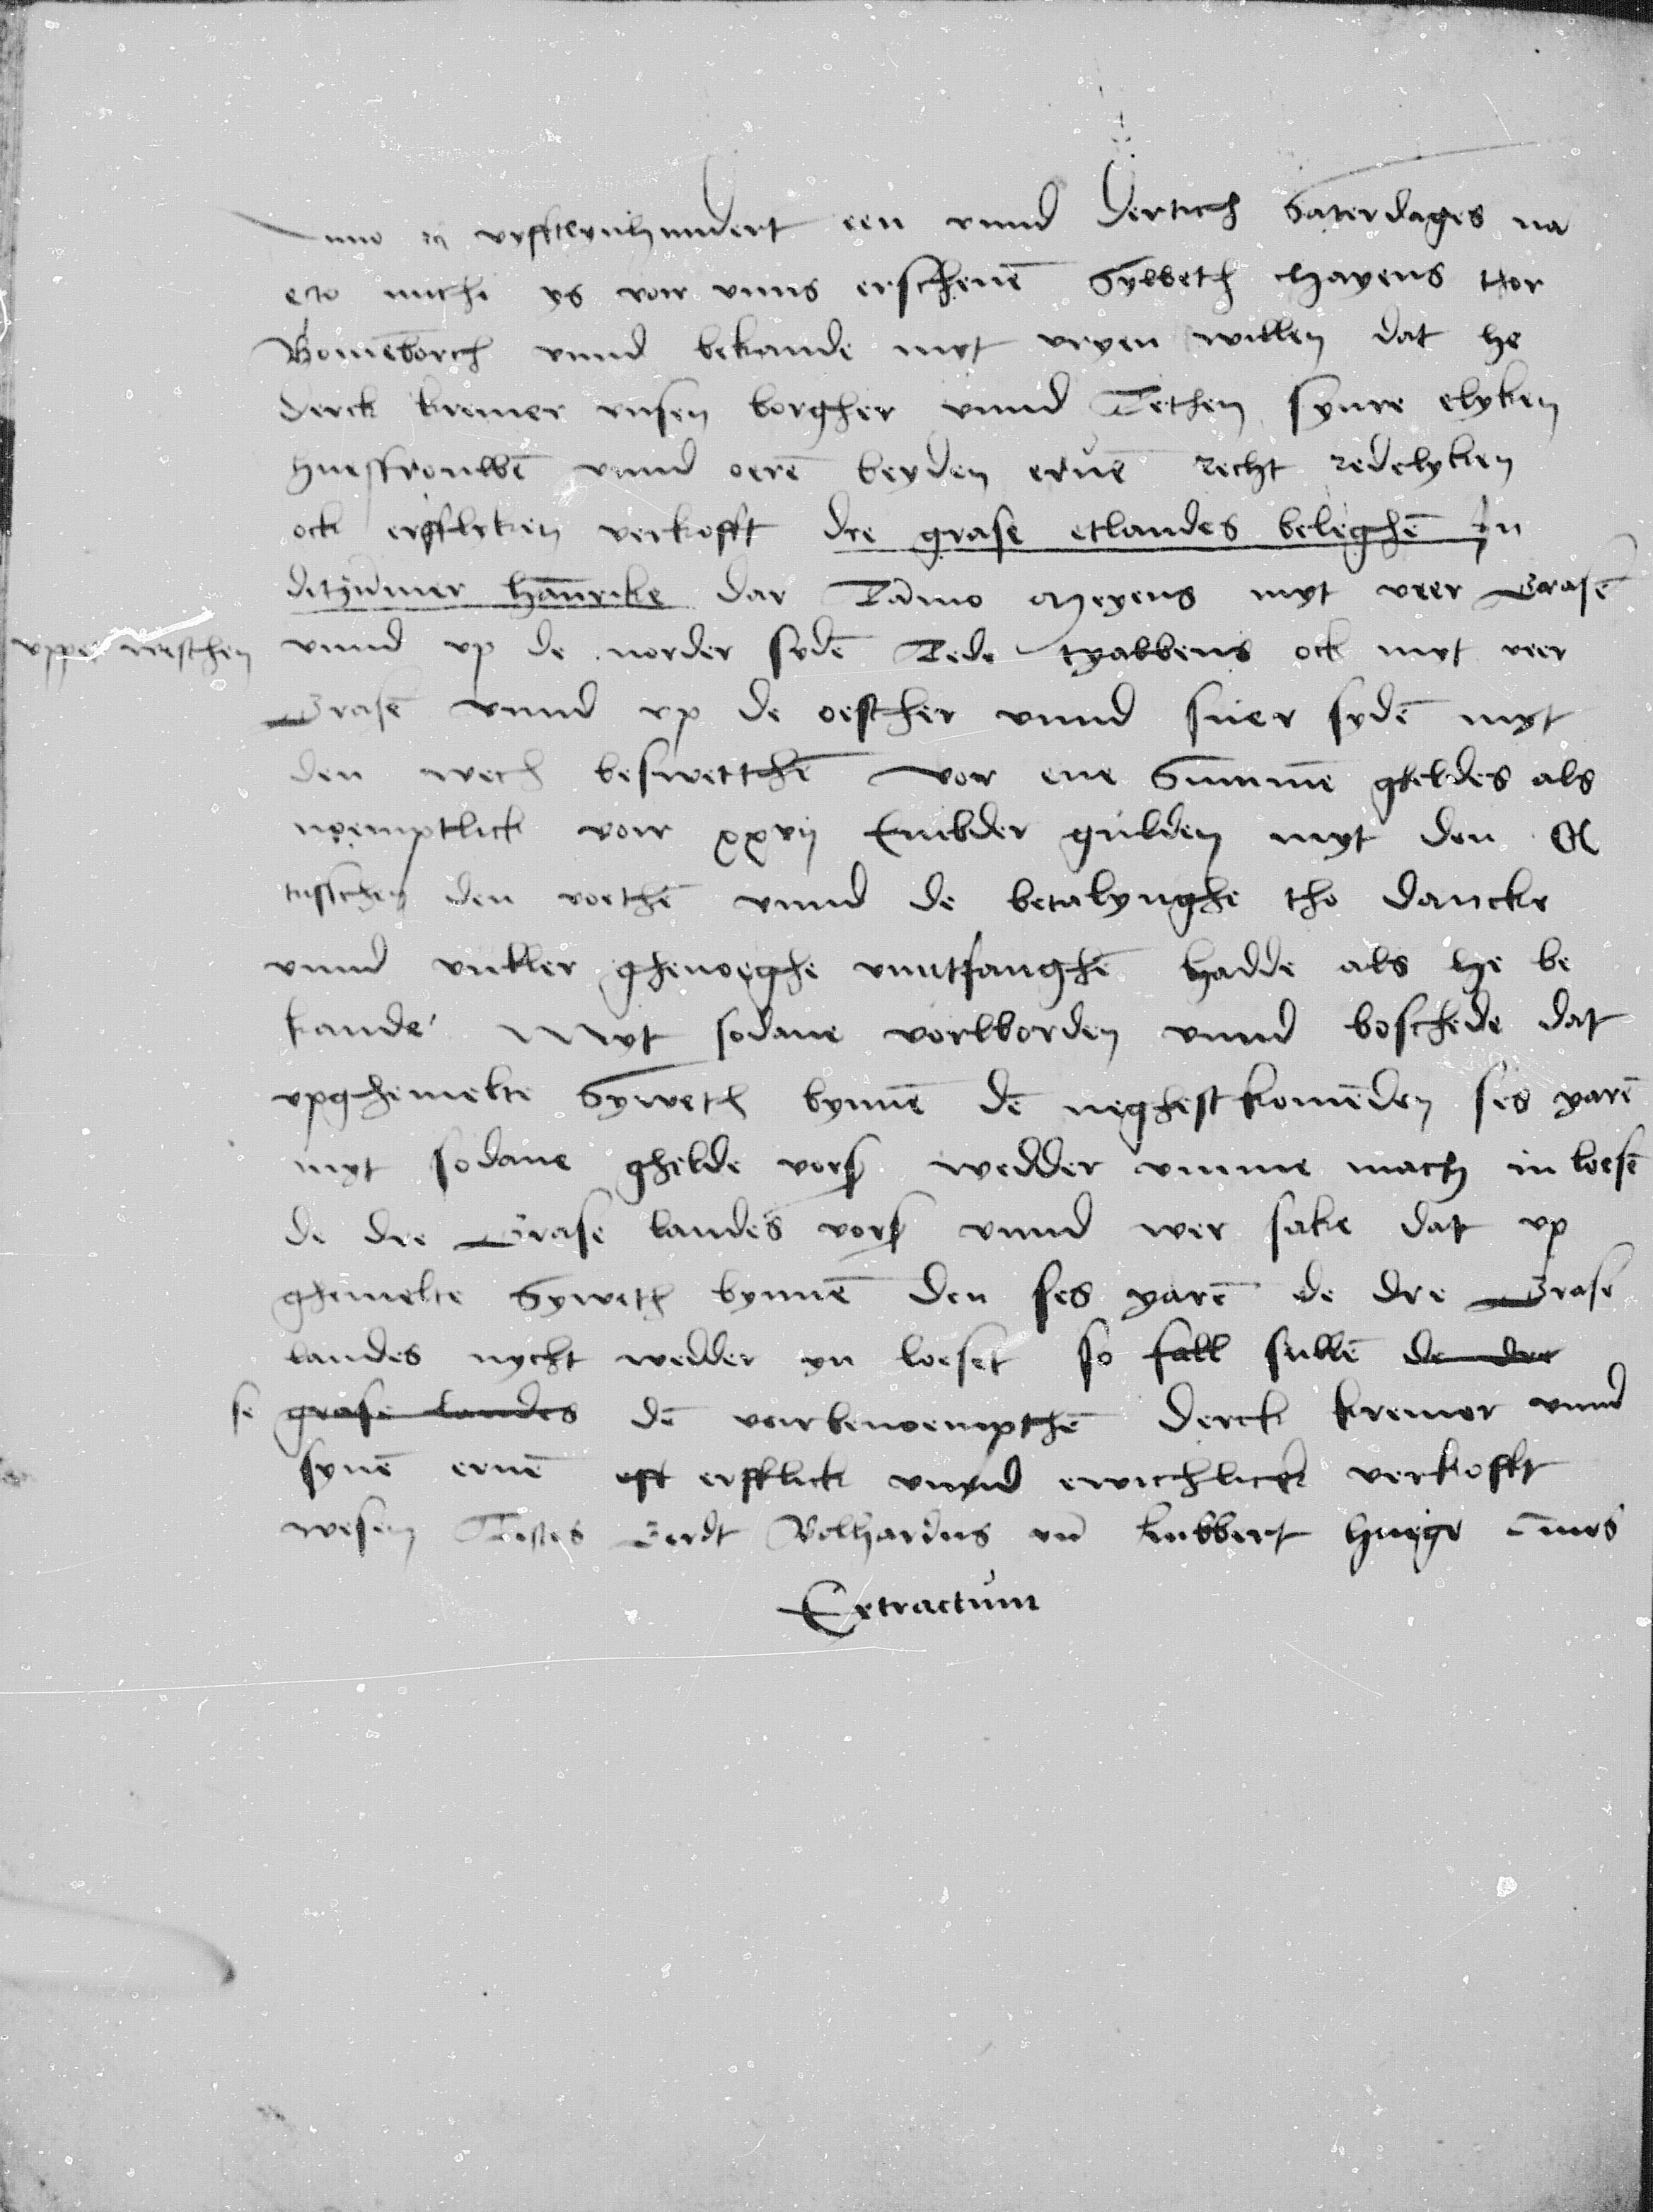 Anno in vyfftteynhundert een vnnd dertich Saterdages na
ys vor vnns erschenē Sybbeth Hayens thor
Bomeborch vnnd bekande myt vryen willen dat he
Derck kremer vnsen borgher vnnd Tethen synre elyken
huesfrouwē vnnd oerē beyden eruē recht redelyken
ock erfflyken verkofft dre grase etlandes beleghē In
ditzumer hamrike dar Tammo Meyens myt veer Grasē
vppe westhen vnnd vp de norder sydē Tede tyabbens ock myt veer
Grasē vnnd vp de oesther vnnd suer sydē myt
den wech beswetthē vor ene Summe gheldes als
noemptlick voir xxvij Embder gulden myt den
tusschen den voethē vnnd de betalynghe tho dancke
vnnd vuller ghenoeghe vnntfanghē hadde als he be
kande Myt sodane vorworden vnnd boschede dat
vpghemelte Syweth bynnē dē neghest komēden ses yarē
myt sodane ghelde vors wedder vmme mach in loesē
de dre Grase landes vors vnnd wer sake dat vp
ghemelte Syweth bynnē den ses yarē de dre Grase
landes nycht wedder yn loeset so sall sullē de dre
se grase landes dē vorbenoempthē Derck kremer vnnd
synē eruē erfflick vnnd ewichlick verkofft
wesen Testes Gerdt Volhardus vn̄ Lubbert huge
Extractum